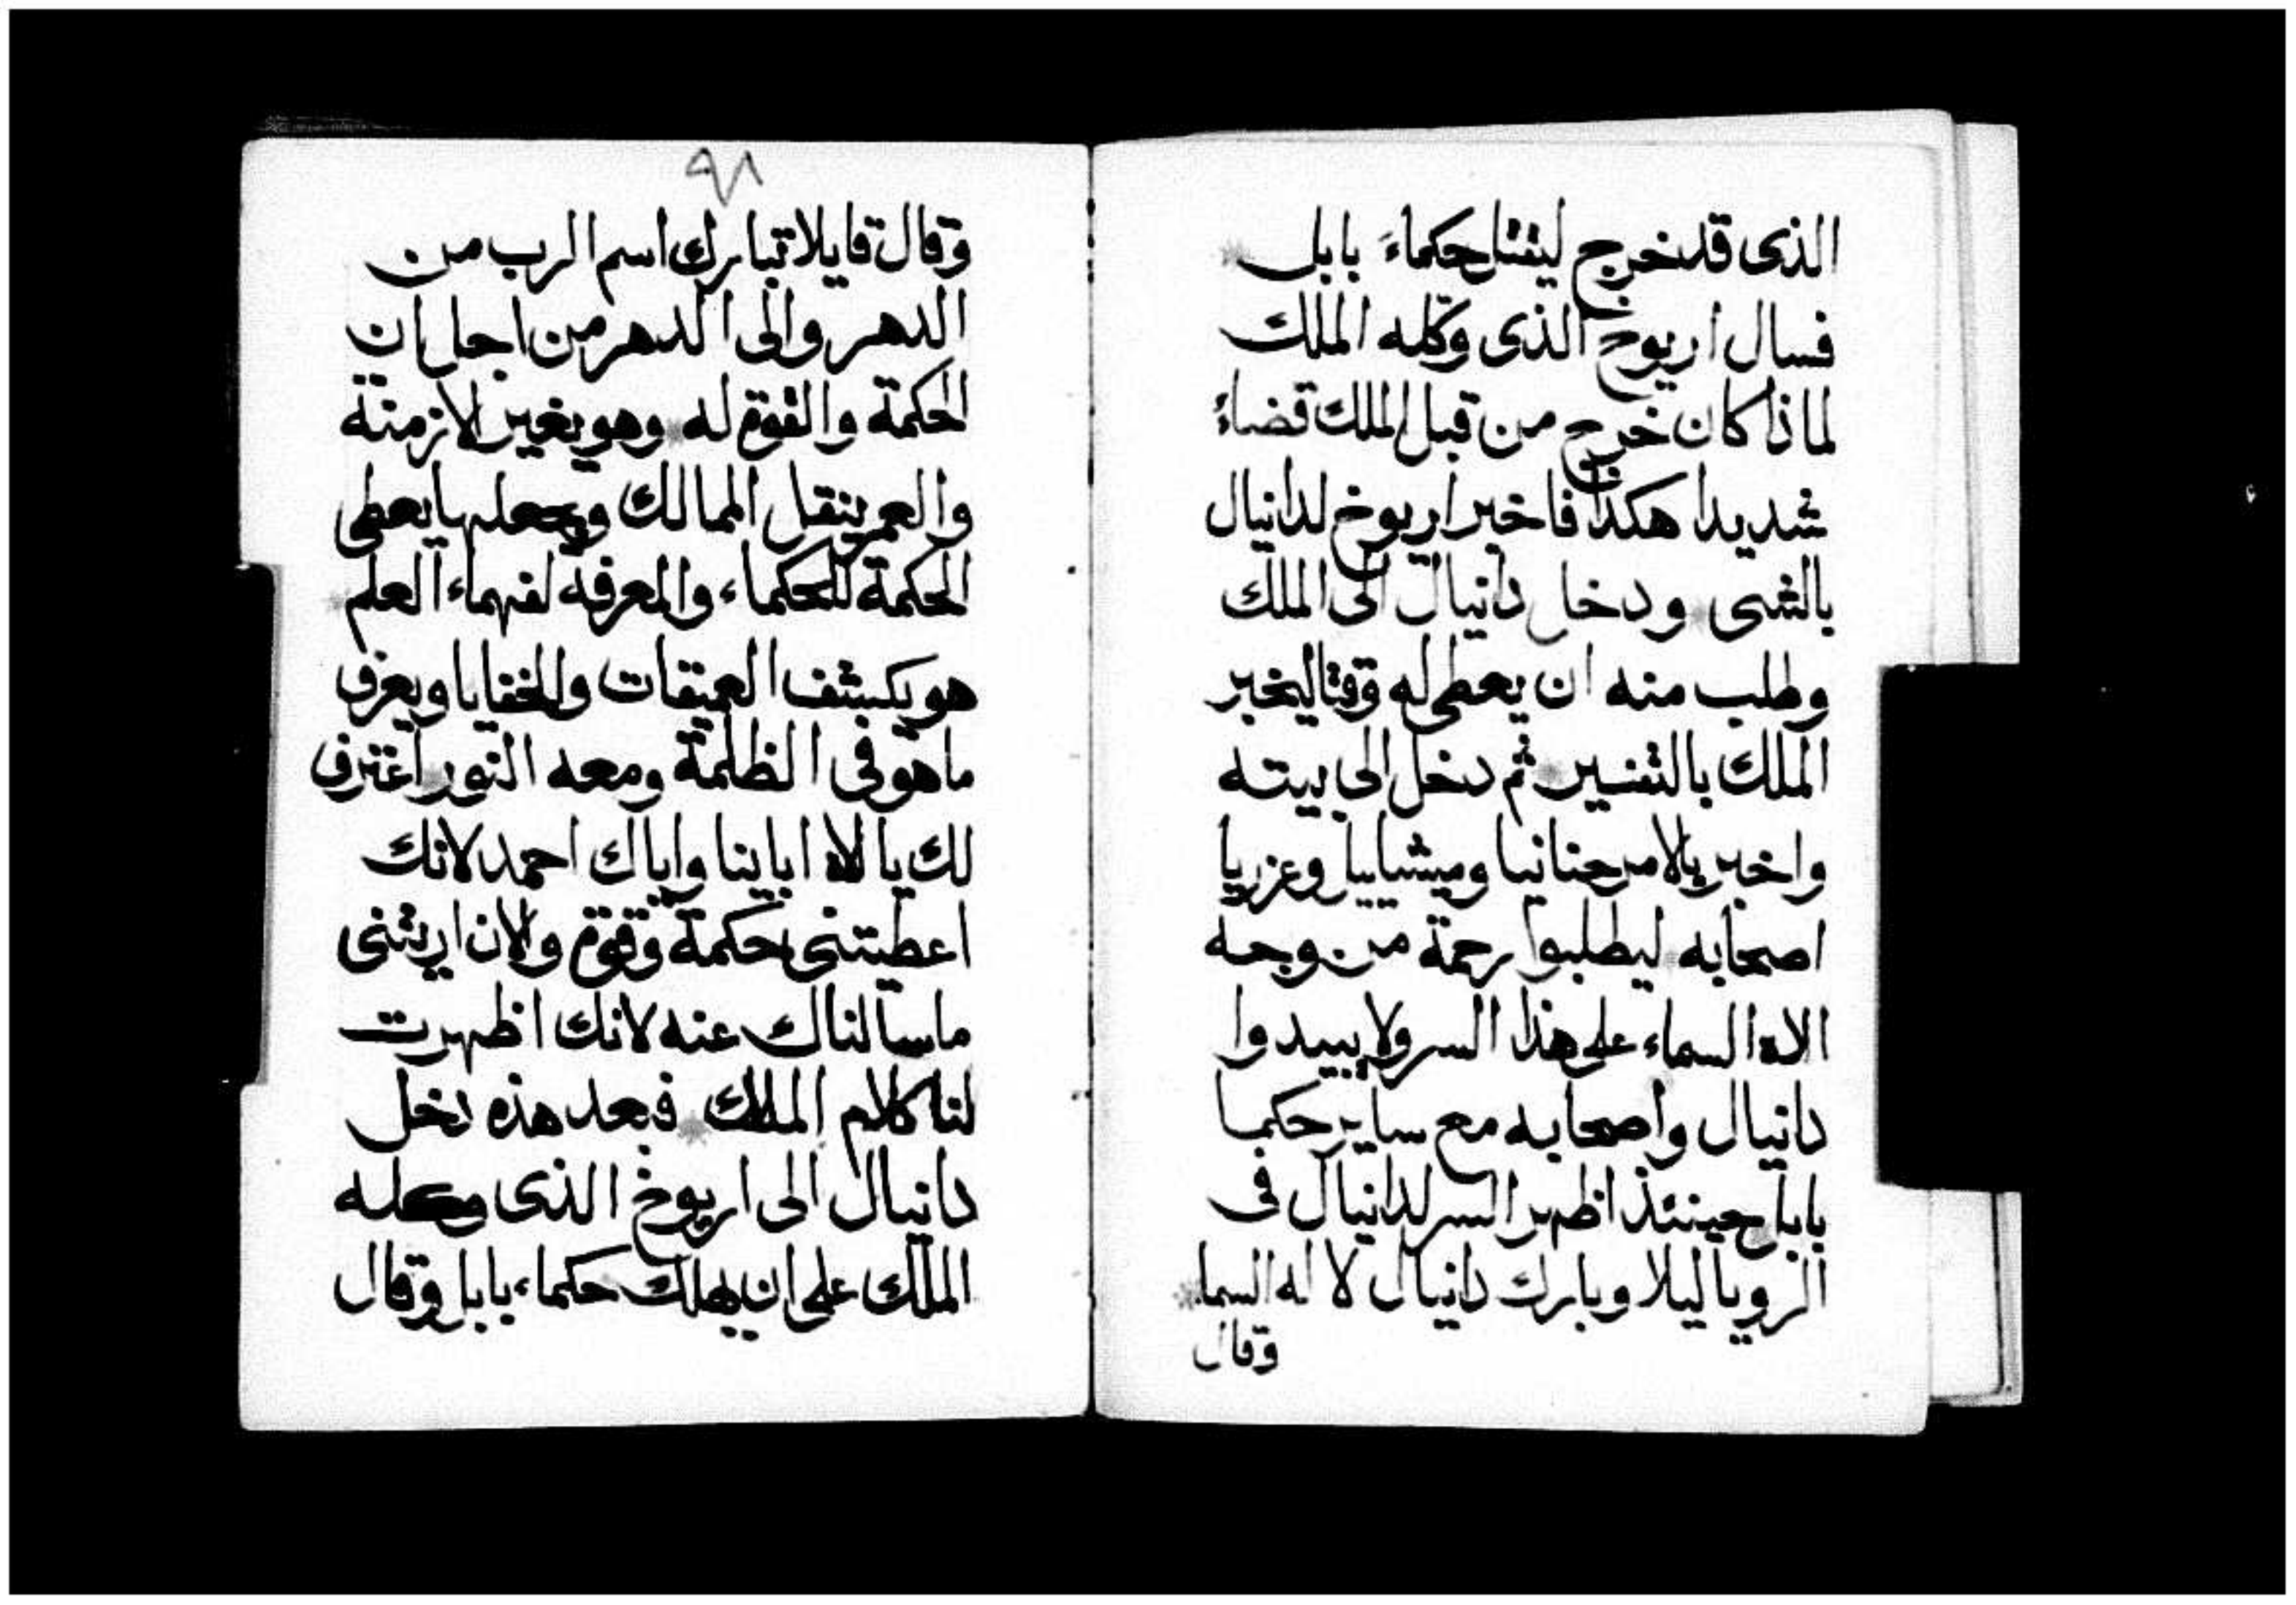 الذى قد خرج ليقتل حكماء بابل
فسال اريوخ الذى وكله الملك
لماذا كان خرج من قبل الملك قضاء
شديدا هكذا فاخبر اريوخ لدانيال
بالشى ودخل دانيال الى الملك
وطلب منه ان يعطى له وقتا ليخبر
الملك بالتفسير ثم دخل الى بيته
واخبر بالامر حنانيا وميشاييل وعزريا
اصحابه ليطلبوا رحمة من وجه
الاه السماء على هذا السر ولا يبيدوا
دانيال واصحابه مع ساير حكما
بابل حينئذ اظهر السر لدانيال فى
الرويا ليلا وبارك دانيال لا له السما
وقال
٩٨
وقال قايلا تبارك اسم الرب من
الدهر والى الدهر من اجل ان
الحكمة والقوة له وهو يغير الازمنة
والعمر ينقل الممالك ويجعلها يعطى
الحكمة للحكماء والمعرفة لفهماء العلم
هو يكشف العميقات والخفايا ويعرف
ما هو فى الظلمة ومعه النور اعترف
لك يا الاه اباينا واياك احمد لانك
اعطيتنى حكمة وقوة والان اريتنى
ما سالناك عنه لانك اظهرت
لنا كلام الملك فبعد هذه دخل
دانيال الى اريوخ الذى وكله
الملك على ان يهلك حكماء بابل وقال